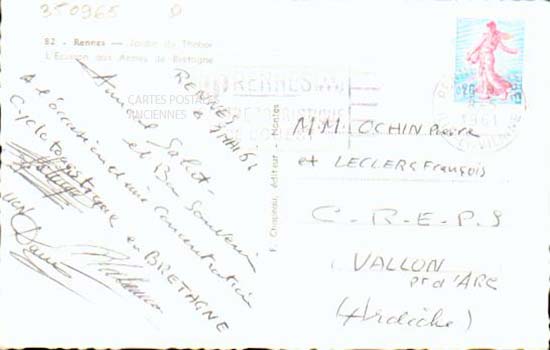 350965
82 - Rennes — Jardin du Thabor
L'Ecusson aux Armes de Bretagne
RENNES
CARTES POSTALES
ANCIENNES
RENNES
Amical Salut
et Bon Souvenir
A l'occasion d'une concentration
Cyclotouristique en BRETAGNE
F. Chapeau, éditeur - Nantes
0,20
1961
M.M. LOCHIN Pierre
et LECLERC François
C-R-E-P-S
VALLON
Pt d'ARC
(Ardèche)